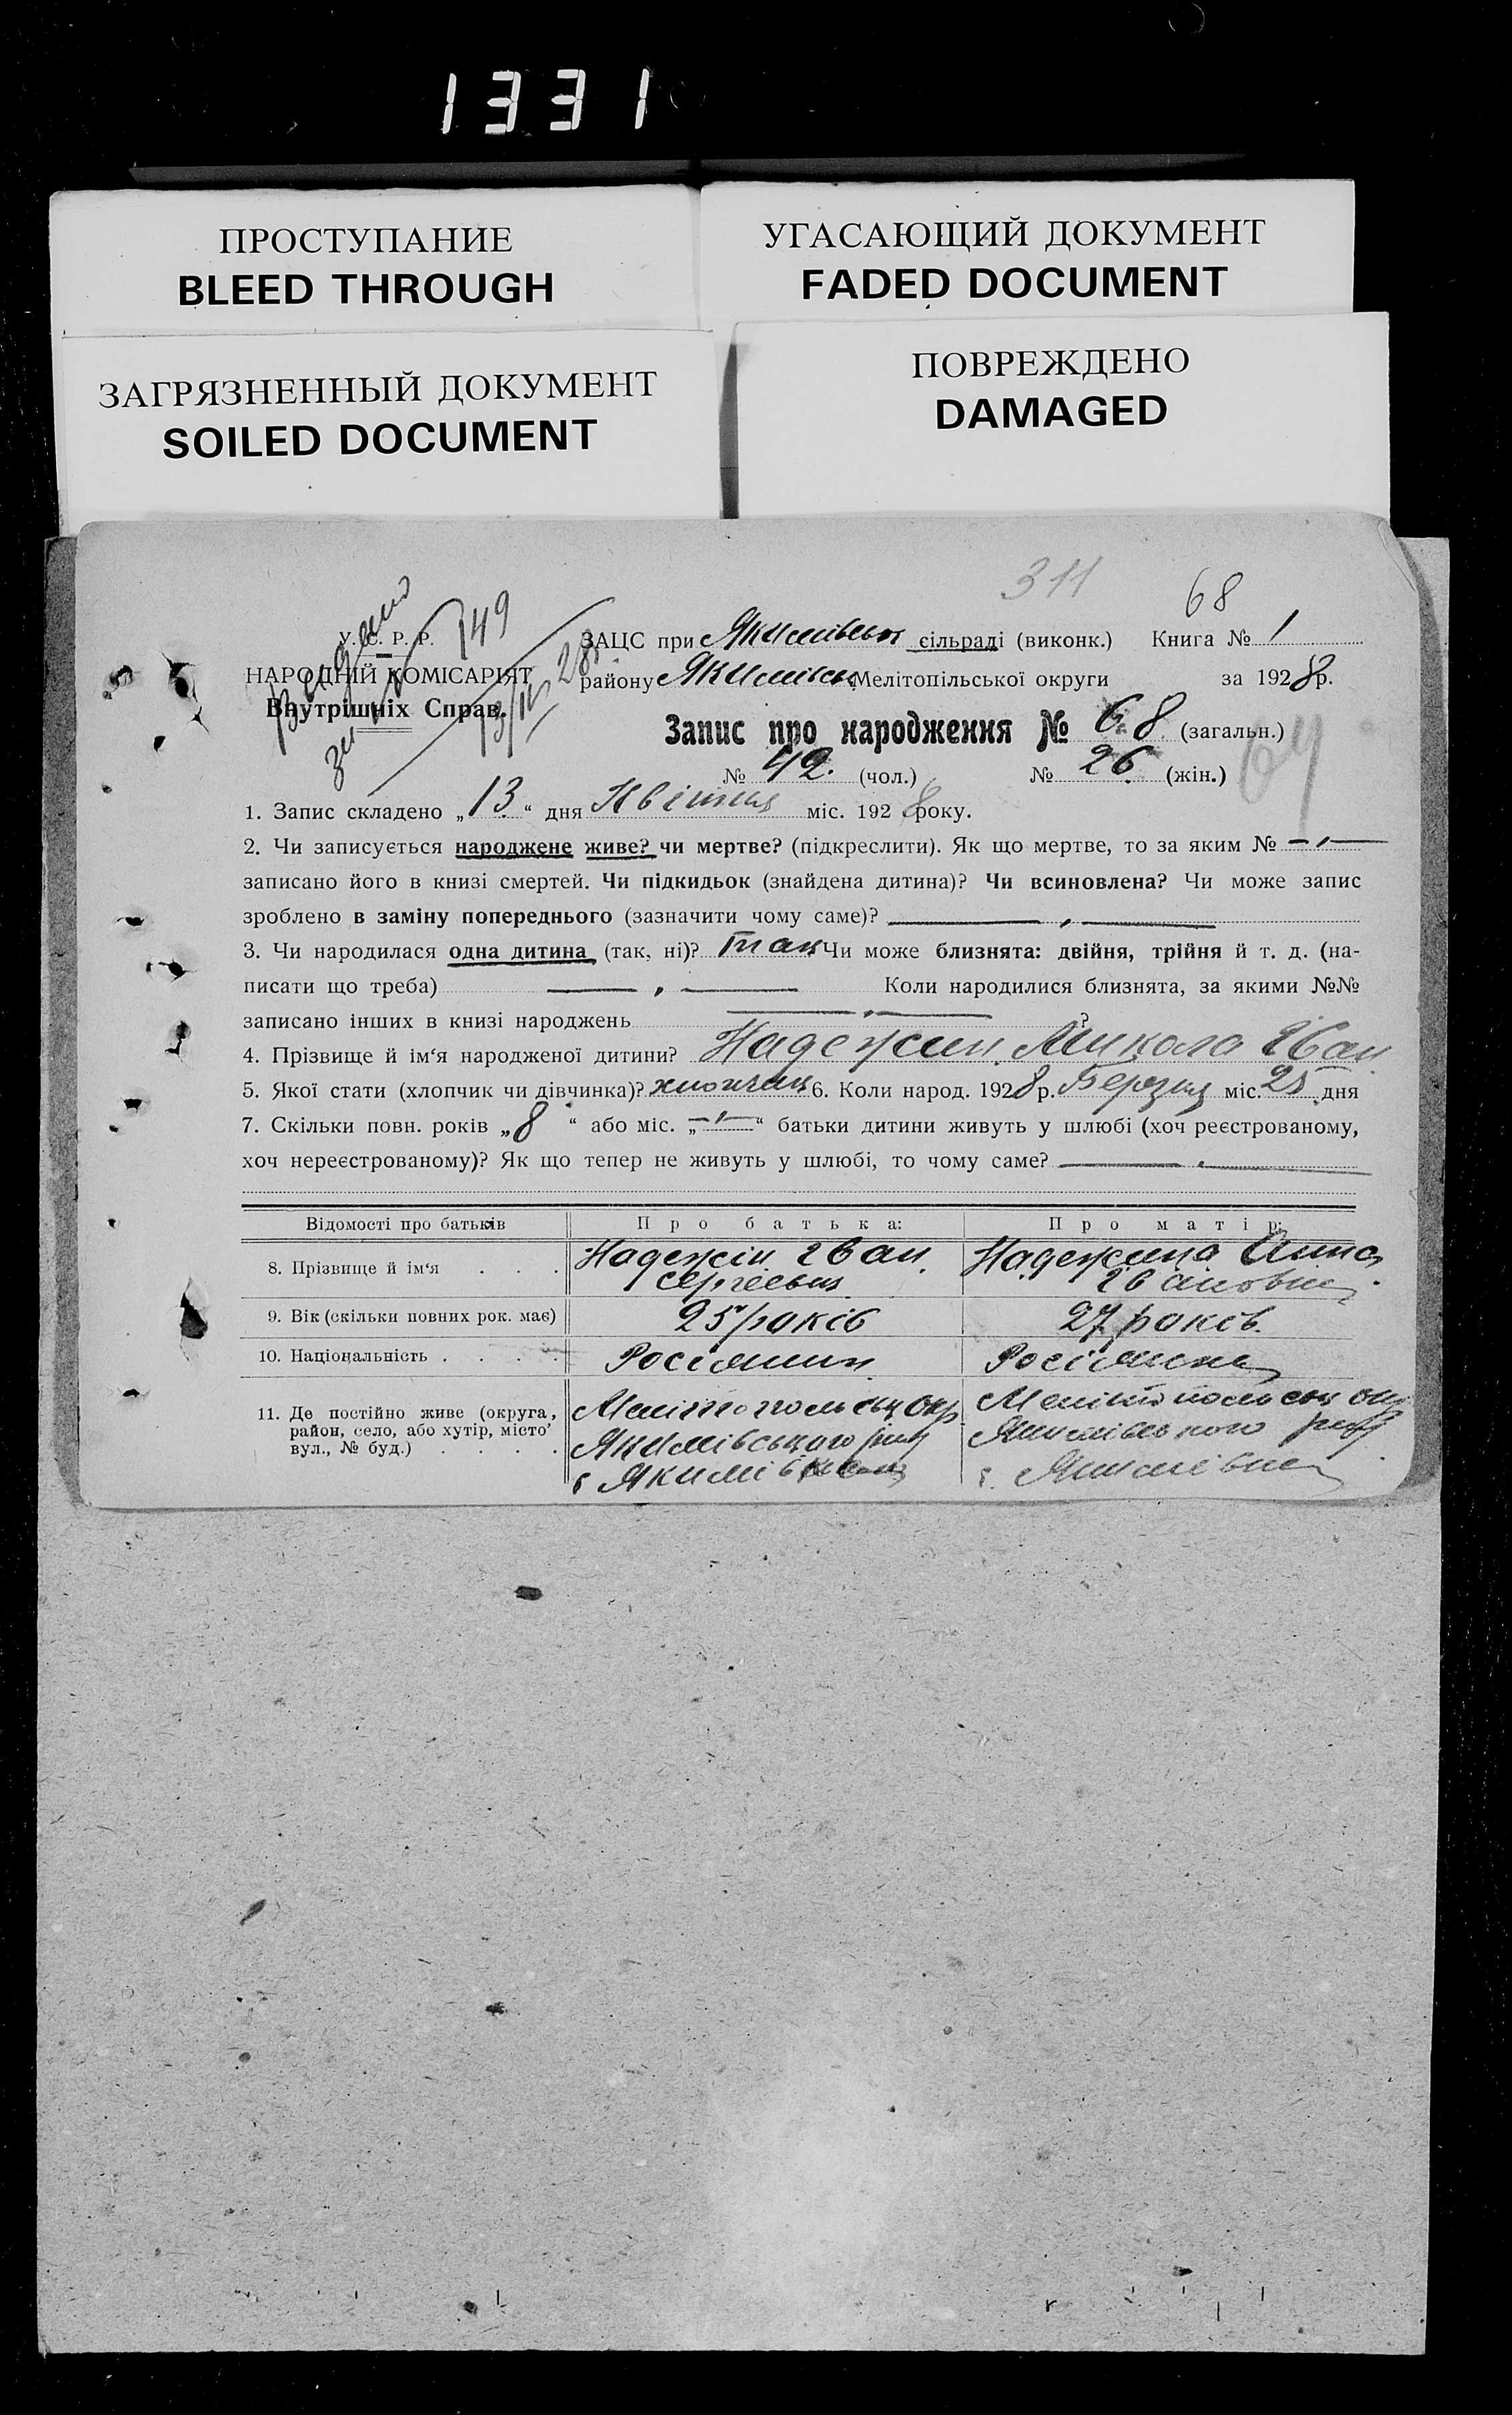 1331
ПРОСТУПАНИЕ
BLEED THROUGH
УГАСАЮЩИЙ ДОКУМЕНТ
FADED DOCUMENT
ЗАГРЯЗНЕННЫЙ ДОКУМЕНТ
SOILED DOCUMENT
ПОВРЕЖДЕНО
DAMAGED
311
68
У. С. Р. Р.
149
НАРОДНІЙ КОМІСАРІЯТ
Внутрішніх Справ.
13/IV 28
ЗАЦС при Якимівськ сільраді (виконк.) Книга № 1
району Якимівськ Мелітопільської округи за 1928р.
Запис про народження № 68 (загальн.)
№ 42. (чол.) № 26 (жін.)
64
1. Запис складено „13.“ дня Квітня міс. 1928 року.
2. Чи записується народжене живе? чи мертве? (підкреслити). Як що мертве, то за яким № —,—
записано його в книзі смертей. Чи підкидьок (знайдена дитина)? Чи всиновлена? Чи може запис
зроблено в заміну попереднього (зазначити чому саме)? —,—
3. Чи народилася одна дитина (так, ні)? так Чи може близнята: двійня, трійня й т. д. (на-
писати що треба) —,— Коли народилися близнята, за якими №№
записано інших в книзі народжень —,— ?
4. Прізвище й ім‘я народженої дитини? Надежин Микола Іван
5. Якої стати (хлопчик чи дівчинка)? хлопчик 6. Коли народ. 1928р. Березня міс. 25 дня
7. Скільки повн. років „8“ або міс. „—,—“ батьки дитини живуть у шлюбі (хоч реєстрованому,
хоч нереєстрованому)? Як що тепер не живуть у шлюбі, то чому саме? —,—
Відомості про батьків Про батька: Про матір:
8. Прізвище й ім‘я . . . Надежін Іван Сергеевич Надежина Анна Івановна
9. Вік (скільки повних рок. має) 25 років 27 років.
10. Національність . . . . Росіянин Росіянка
11. Де постійно живе (округа,
район, село, або хутір, місто’
вул., № буд.) . . . .
Мелітопольськ окр
Якимівського рай
с Якимівка
Мелітопольськ окр
Якимівського рай
с. Якимівка